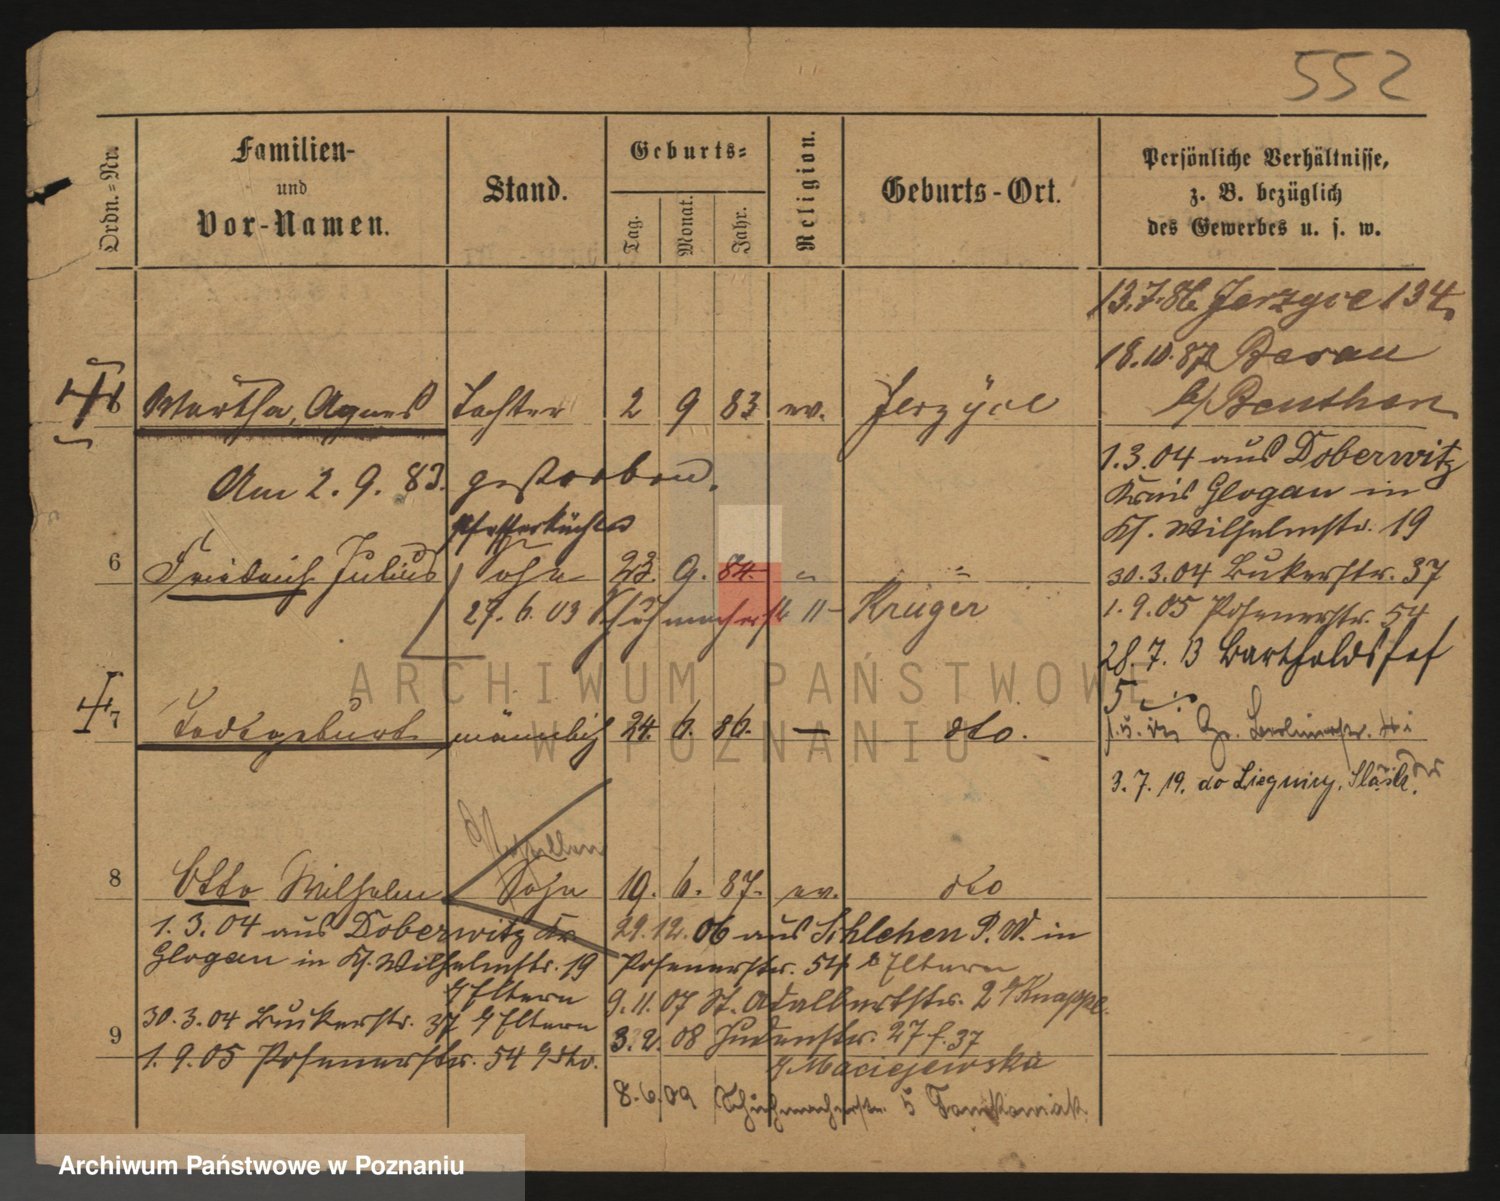 552
Ordn.=Nr.
Familien-
und
Vor-Namen.
Stand.
Geburts=
Tag.
Monat.
Jahr.
Religion.
Geburts-Ort.
Persönliche Verhältnisse,
z. B. bezüglich
des Gewerbes u. s. w.
13.7.86 Jerzyce 134
18.10.87 Besau
b/Beuthen
Martha, Agnes Tochter 2 9 83 ev. Jerzyce
Am 2. 9. 83. gestorben.
1.3.04 aus Doberwitz
Kreis Glogau in
Kl. Wilhelmstr. 19
Pfefferküchler
6 Friedrich Julius Sohn 23. 9. 84. " "
30.3.04 Bukerstr. 37
27.6.03 Schuhmacherstr. 11 Krüger
1.9.05 Posenerstr. 54
28.7.13 Bartholdshof
5
7 Todtgeburt männlich 24. 6. 86. — dto.
3.7.19. do Liegnicy,
8 Otto Wilhelm Sohn 19. 6. 87. ev. dto
1.3.04 aus Doberwitz Kr.
Glogau in Kl. Wilhelmstr. 19
b/ Eltern
30.3.04 Bukerstr. 37 b/ Eltern
9
1.9.05 Posenerstr. 54 b/ dto.
29.12.06 aus Schlehen P.W. in
Posenerstr. 54 b Eltern
9.11.07 St. Adalbertstr. 2 b/ Knappe
3.2.08 Judenstr. 27 f. 37
b/ Maciejewska
8.6.09 Schuhmacherstr. 5
ARCHIWUM PAŃSTWOWE
W POZNANIU
Archiwum Państwowe w Poznaniu